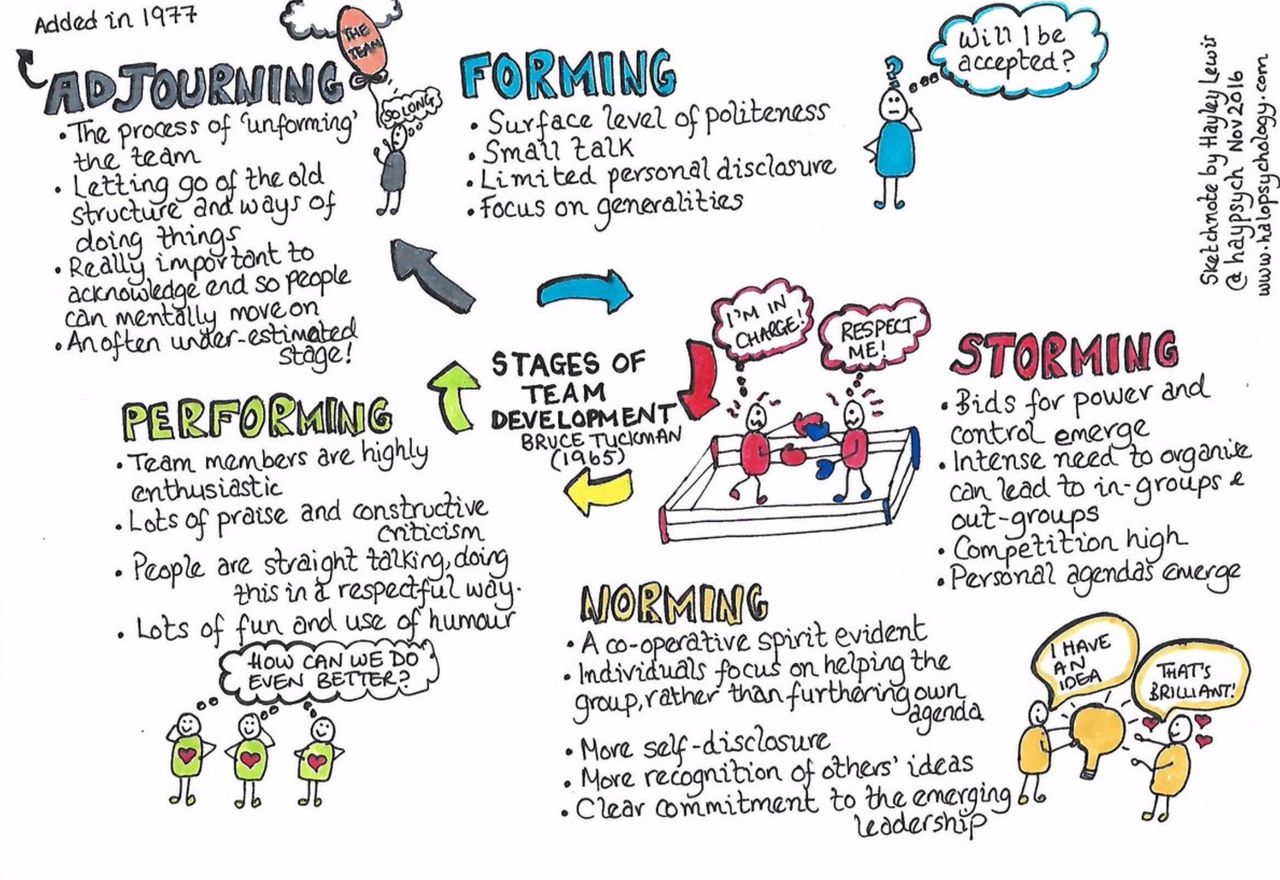 Added in 1977
ADJOURNING
• The process of 'unforming'
the team
• Letting go of the old
structure and ways of
doing things
• Really important to
acknowledge end so people
can mentally move on
• An often under-estimated
stage!
THE
TEAM
SO LONG
FORMING
• Surface level of politeness
• Small talk
• Limited personal disclosure
• Focus on generalities
?
Will I be
accepted?
Sketchnote by Hayley Lewis
@haypsych Nov 2016
www.halopsychology.com
STAGES OF
TEAM
DEVELOPMENT
BRUCE TUCKMAN
(1965)
I'M IN
CHARGE!
RESPECT
ME!
STORMING
• Bids for power and
control emerge
• Intense need to organise
can lead to in-groups &
out-groups
• Competition high
• Personal agendas emerge
NORMING
• A co-operative spirit evident
• Individuals focus on helping the
group, rather than furthering own
agenda
• More self-disclosure
• More recognition of others' ideas
• Clear commitment to the emerging
leadership
I HAVE
AN
IDEA
THAT'S
BRILLIANT!
PERFORMING
• Team members are highly
enthusiastic
• Lots of praise and constructive
criticism
• People are straight talking, doing
this in a respectful way.
• Lots of fun and use of humour
HOW CAN WE DO
EVEN BETTER?